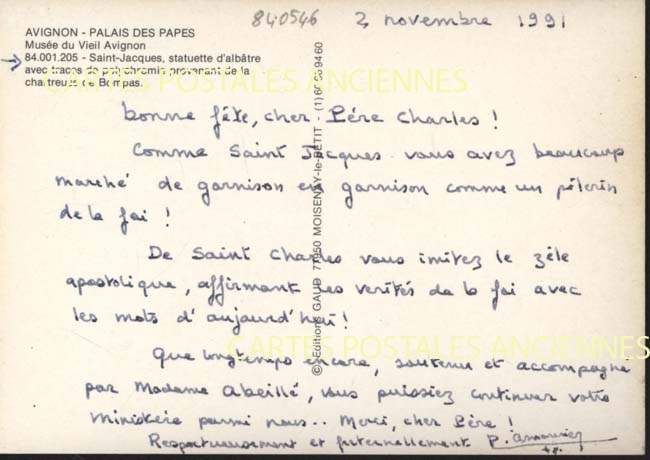 840546
2 novembre 1991
AVIGNON - PALAIS DES PAPES
Musée du Vieil Avignon
84.001.205 - Saint-Jacques, statuette d'albâtre
avec traces de polychromie provenant de la
chartreuse de Bompas.
CARTES POSTALES ANCIENNES
bonne fête, cher Père Charles !
Comme Saint Jacques vous avez beaucoup
marché de garnison en garnison comme un pèlerin
de la foi !
De Saint Charles vous imitez le zèle
apostolique, affirmant les verités de la foi avec
les mots d'aujourd'hui !
CARTES POSTALES ANCIENNES
Que longtemps encore, soutenu et accompagné
par Madame Abeillé, vous puissiez continuer votre
Ministère parmi nous.. Merci, cher Père !
Respectueusement et fraternellement P.
© Editions GAUD 77950 MOISENAY-le-PETIT - (1) 9460